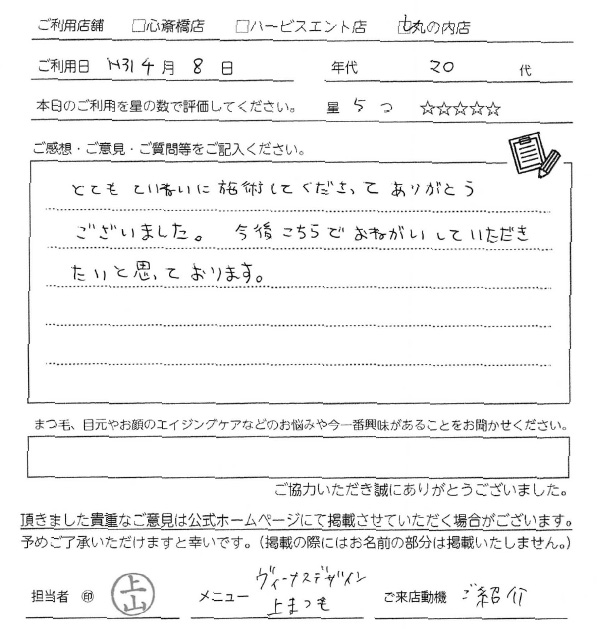 ご利用店舗 □心斎橋店 □ハービスエント店 ☑丸の内店
ご利用日 H31 4 月 8 日 年代 20 代
本日のご利用を星の数で評価してください。 星 5 つ ☆☆☆☆☆
ご感想・ご意見・ご質問等をご記入ください。
とても ていねいに 施術してくださって ありがとう
ございました。 今後こちらで おねがいしていただき
たいと思っております。
まつ毛、目元やお顔のエイジングケアなどのお悩みや今一番興味があることをお聞かせください。
ご協力いただき誠にありがとうございました。
頂きました貴重なご意見は公式ホームページにて掲載させていただく場合がございます。
予めご了承いただけますと幸いです。（掲載の際にはお名前の部分は掲載いたしません。）
ヴィーナスデザイン
担当者 ㊞ 上山 メニュー 上まつも ご来店動機 ご紹介